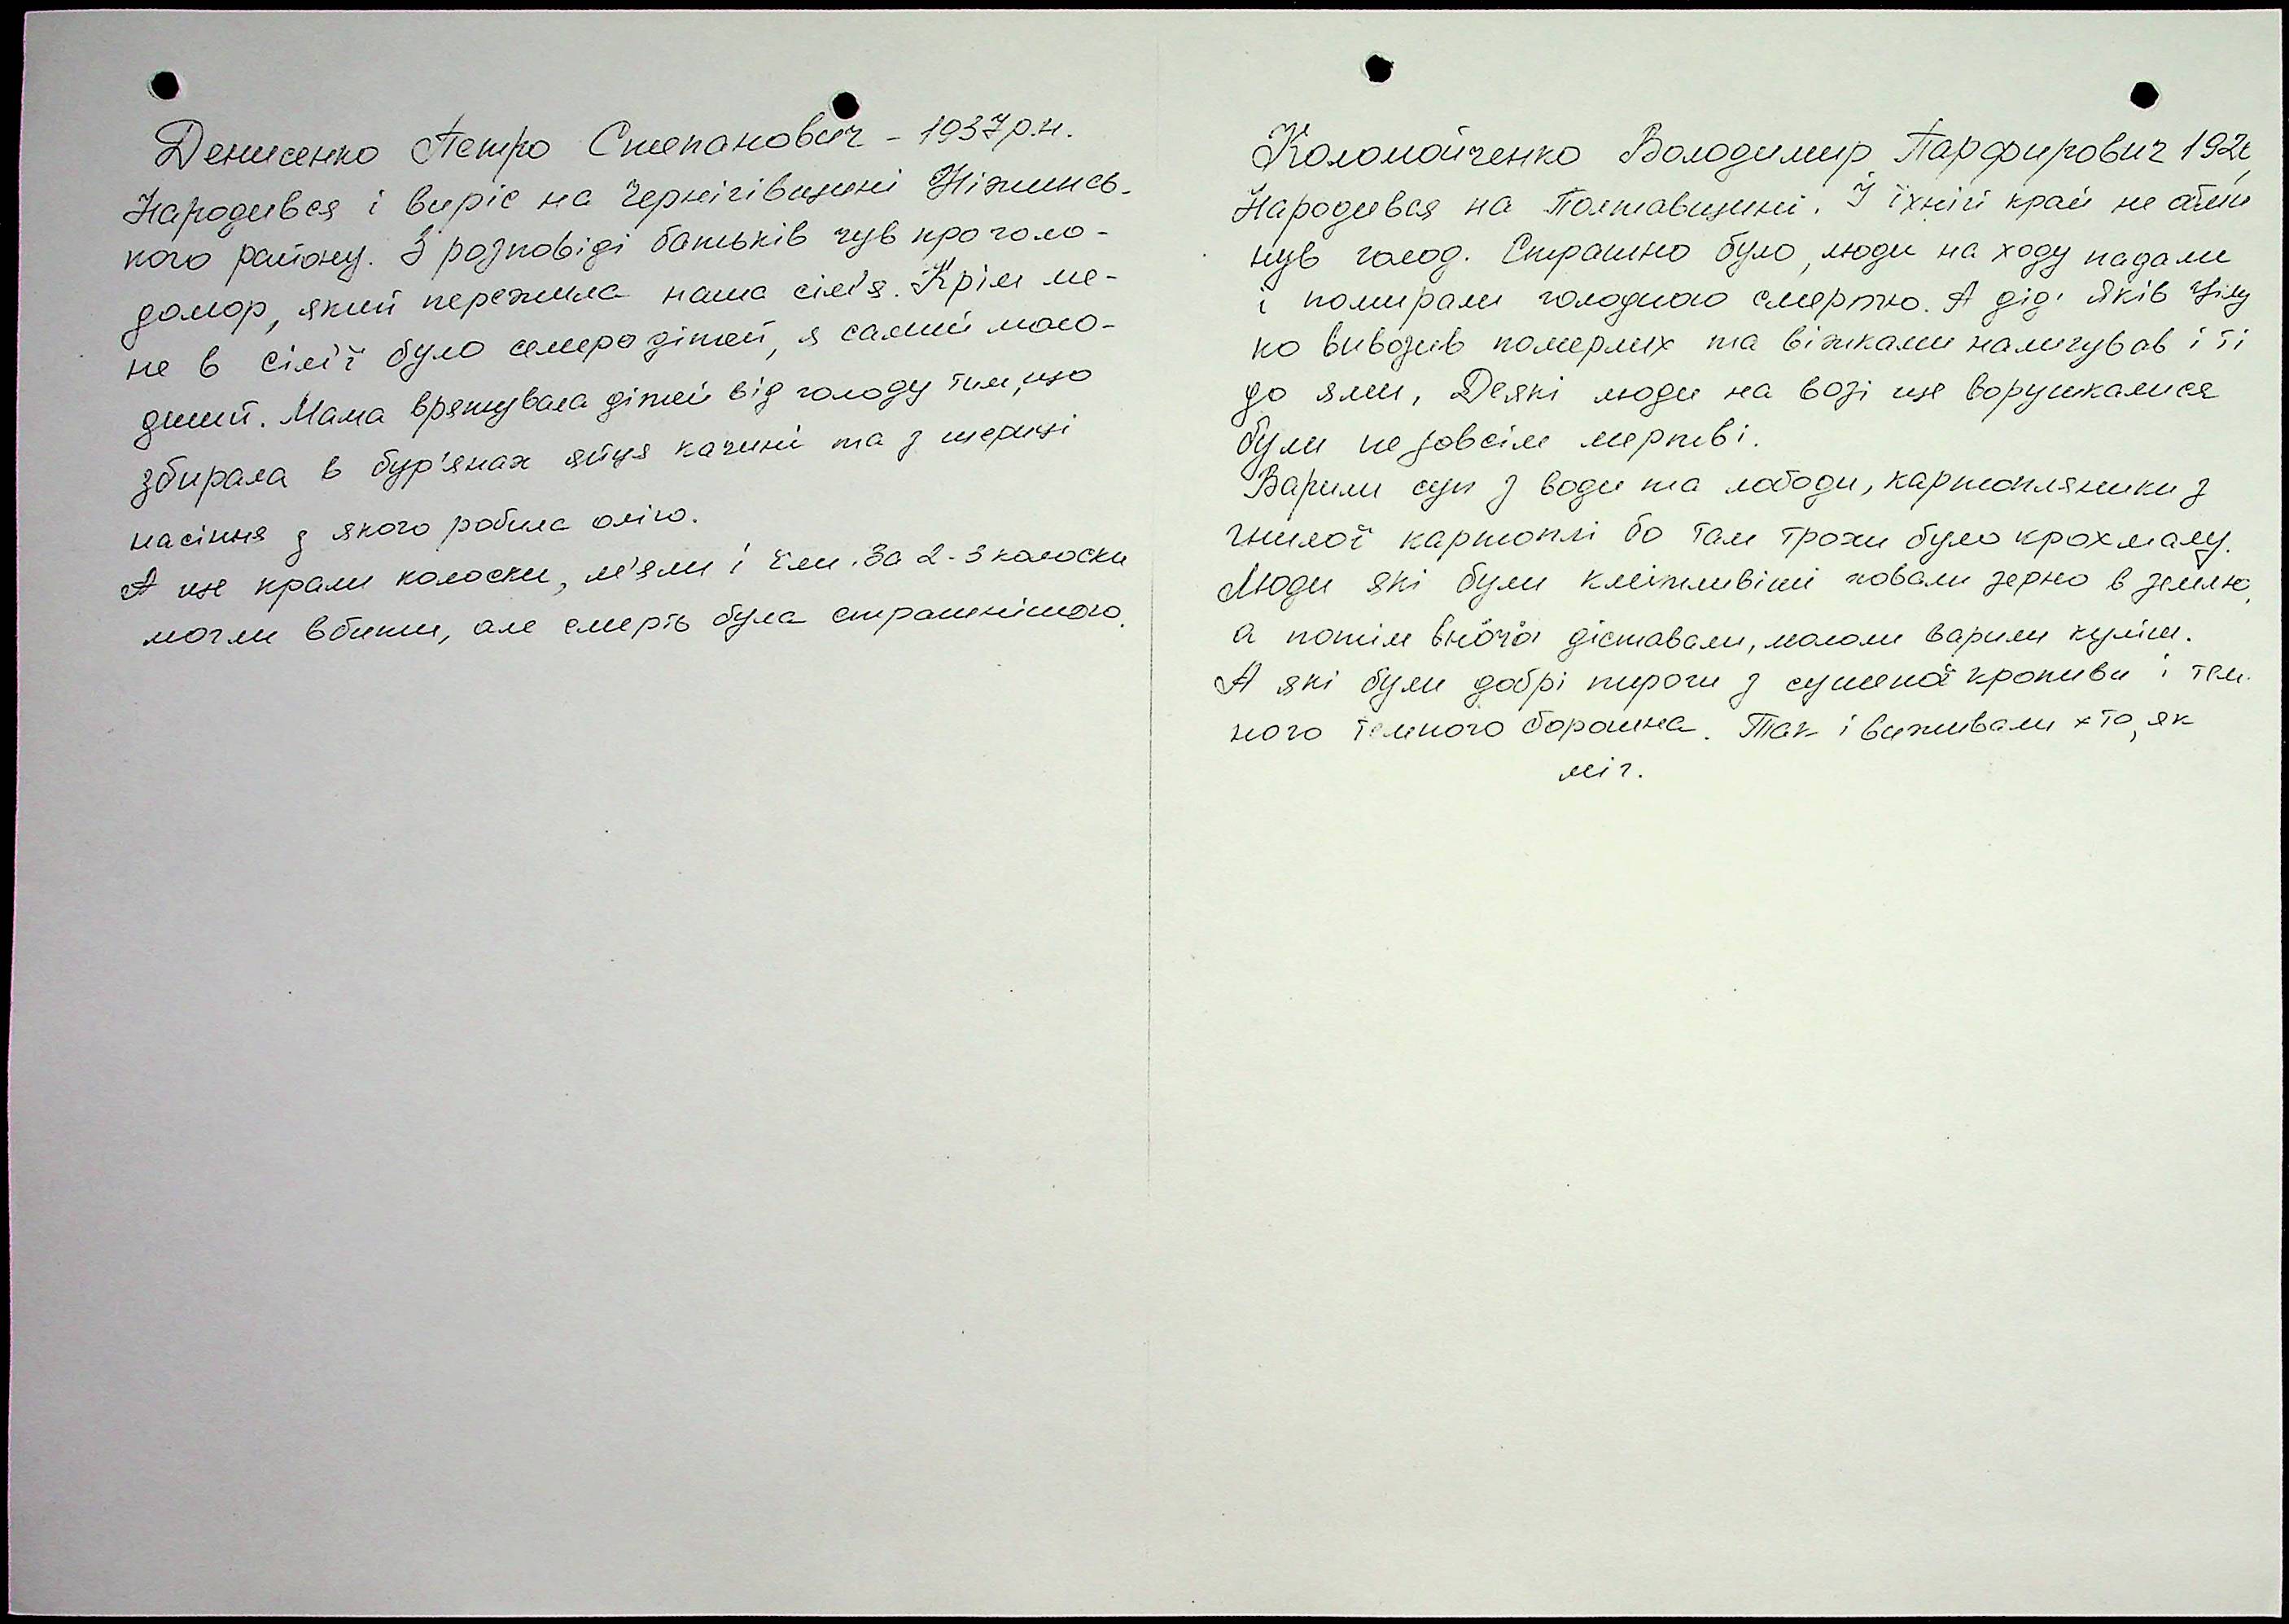 Денисенко Петро Степанович - 1937 р.н.
Народився і виріс на Чернігівщині Ніжинсь-
кого району. З розповіді батьків чув про голо-
домор, який пережила наша сім'я. Крім ме-
не в сім'ї було семеро дітей, я самий моло-
дший. Мама врятувала дітей від голоду тим, що
збирала в бур'янах яйця качині та з щериці
насіння з якого робила олію.
А ще крали колоски, м'яли і їли. За 2-3 колоски
могли вбити, але смерть була страшнішою.
Коломойченко Володимир Парфирович
Народився на Полтавщині. І їхній край не оми
нув голод. Страшно було, люди на ходу падали
і помирали голодною смертю. А дід Яків
но вивозив померлих та віжками налигував і її
до ями, Деякі люди на возі ще ворушкалися
були не зовсім мертві.
Варили суп з води та лободи, картопляники з
гнилої картоплі бо там трохи було крохмалу.
Люди які були кмітливіші ховали зерно в землю,
а потім вночі діставали, мололи варили куліш.
А які були добрі пироги з сушеної кропиви і тем-
ного темного борошна. Так і виживали хто, як
міг.